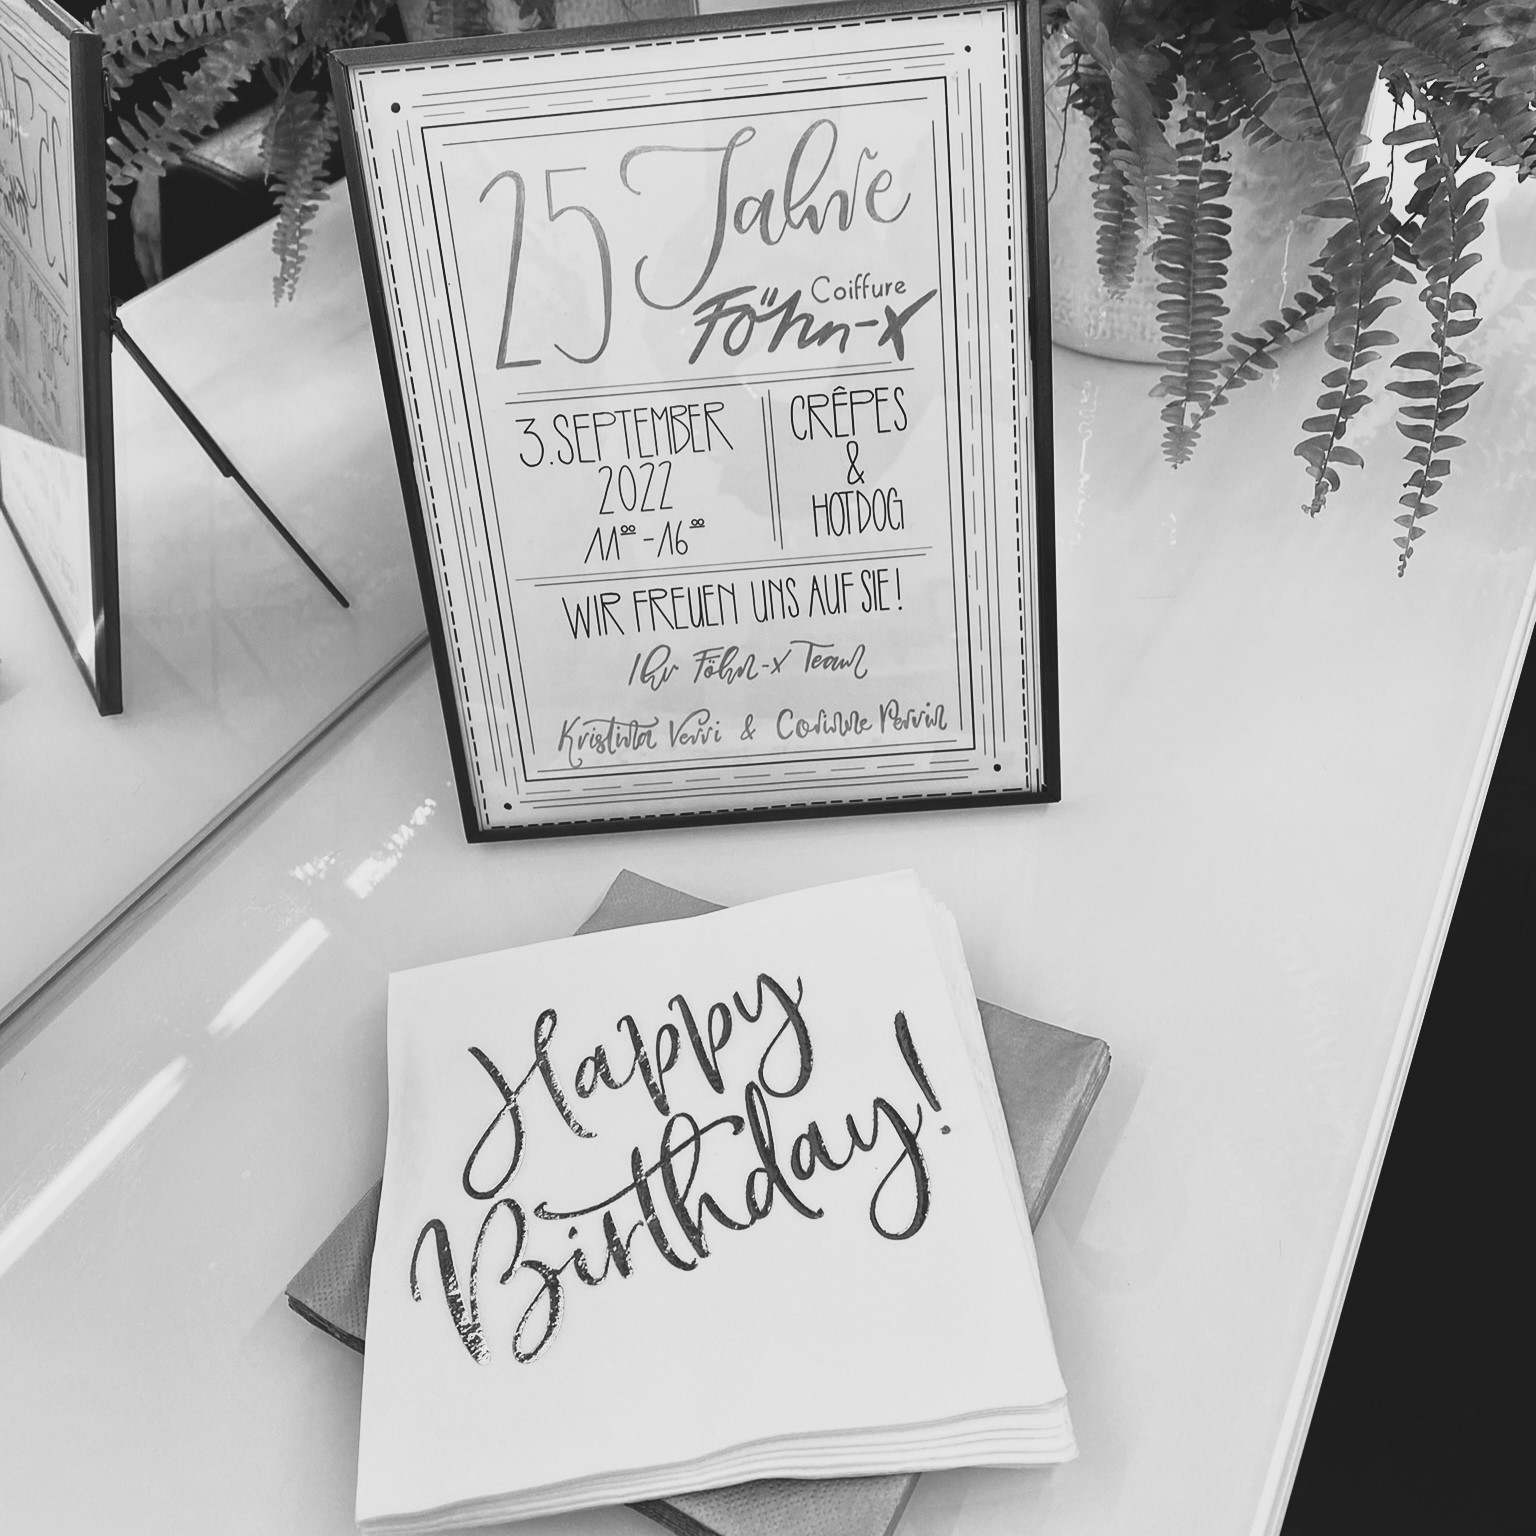 25 Jahre
Coiffure
Föhn-X
3. SEPTEMBER
2022
11⁰⁰-16⁰⁰
CRÊPES
&
HOTDOG
WIR FREUEN UNS AUF SIE!
Ihr Föhn-X Team
Kristina Verri & Corinne Perrin
Happy
Birthday!